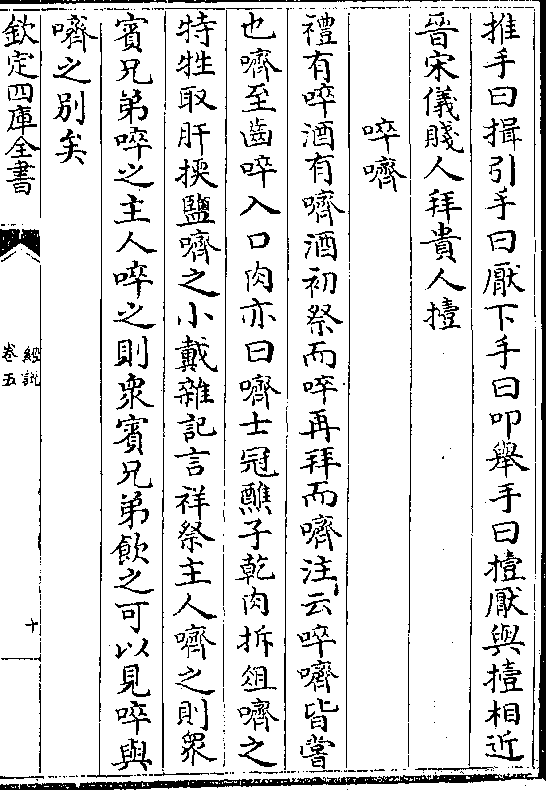 推手曰揖引手曰厭下手曰叩舉手曰擡厭與擡相近
晉宋儀賤人拜貴人擡
啐嚌
禮有啐酒有嚌酒初祭而啐再拜而嚌注云啐嚌皆嘗
也嚌至齒啐入口肉亦曰嚌士冠醮子乾肉折俎嚌之
特牲取肝㨎鹽嚌之小戴雜記言祥祭主人嚌之則衆
賓兄弟啐之主人啐之則衆賓兄弟飲之可以見啐與
嚌之别矣
欽定四庫全書
經説
卷五
十